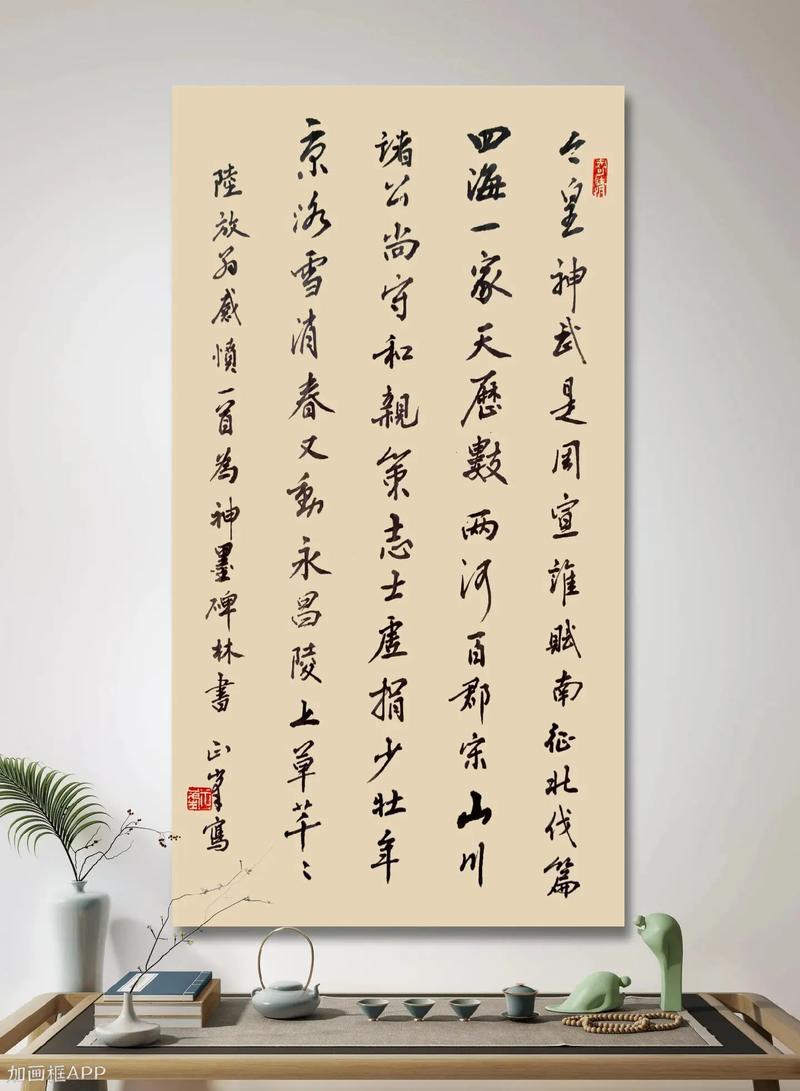 今皇神武是周宣誰賦南征北伐篇
四海一家天歷數两河百郡宋山川
諸公尚守和親策志士虛捐少壯年
京洛雪消春又動永昌陵上草芊〻
陸放翁感憤一首為神墨碑林書 正峯寫
加画框APP